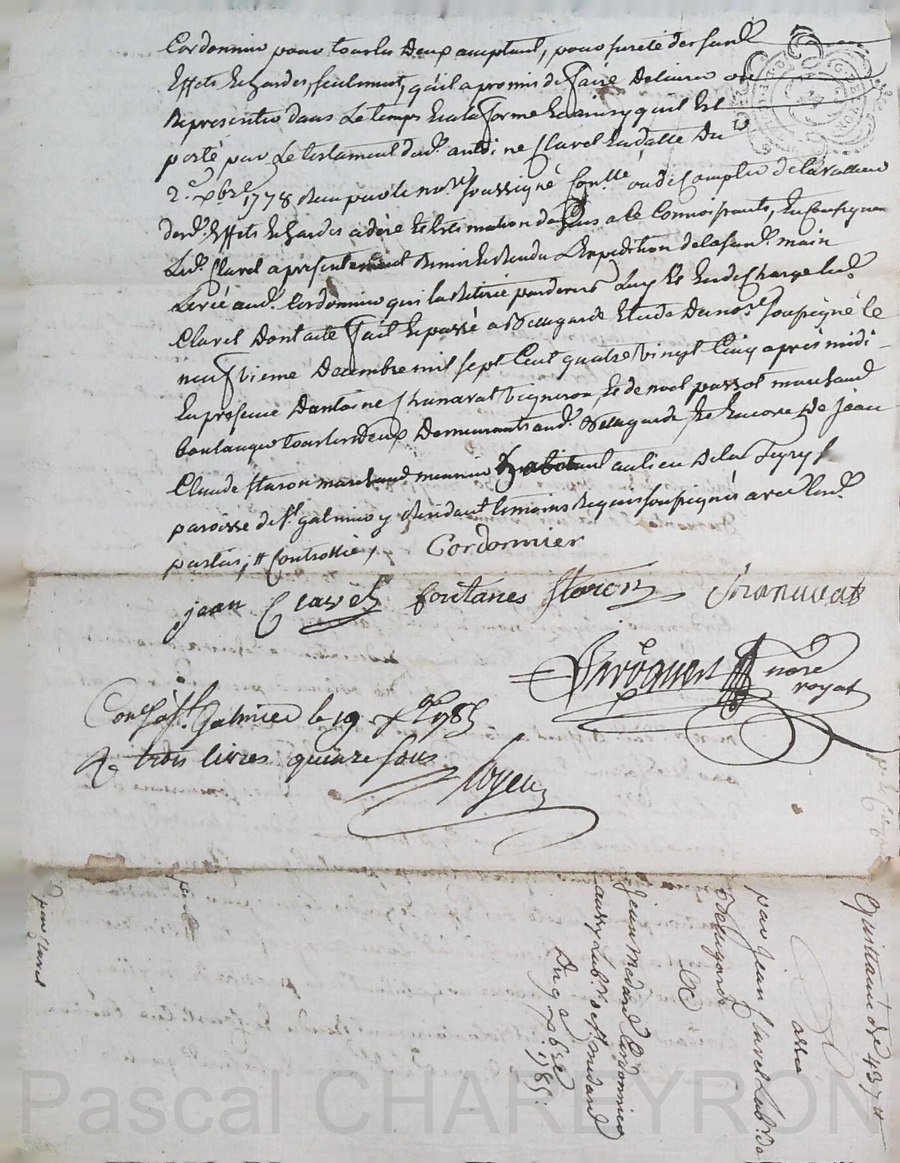 Cordonnier pour tous les deux comptant, pour sureté desd.
Effets & hardes, seulement, qu'il a promis de faire delivrer ou
Representer dans le temps & a la forme & ainsy qu'il est
porté par le testament dud. antoine Clavel en datte du
2e xbre 1778 Reçu par le nore soussigné
desd. Effets & hardes a dire & Estimation de gens a le Connoissants, En Consequence
Led. Clavel a presentement Remis & Rendu L'expedition de la
aud. Cordonnier qui la Retirée pardevers Luy Et En decharge led.
Clavel Dont acte fait & passé a Bellegarde Etude du nore soussigné le
neufvieme Decembre mil sept Cent quatre vingt Cinq après midi
En presence D'antoine Chanavat vigneron, & de noel passot marchand
boulanger tous les deux Demeurants aud. Bellegarde, Et Encore de Jean
Claude Staron marchand meunier habitant au lieu de la
paroisse de St galmier y Residant temoins Requis soussignés avec lesd.
parties, # Controllé, Cordonnier
jean Clavel fontanes Staron Chanavat
nore
royal
Con. à St. Galmier le 19 xbre 1785
R. trois livres quinze sous
Quittance de 437 #
par Jean Clavel Lab. de
Bellegarde
&c
Jean Medard Cordonnier
aussy Lab. de St medard
Du 9e xbre
1785.
pour Clavel
Pascal CHAREYRON